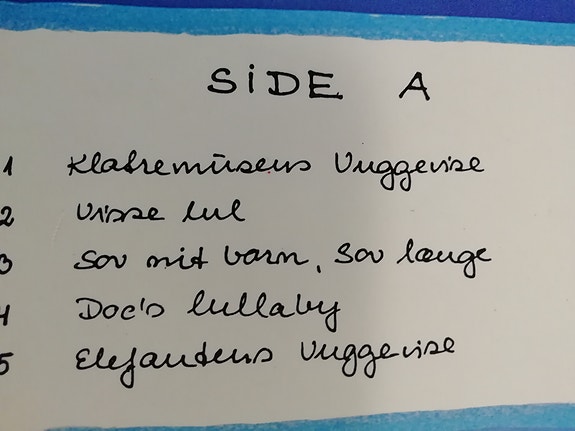 SiDE A
1 Klatremūsens Vuggevise
2 Visse lul
3 Sov mit barn, Sov længe
4 Doc's lullaby
5 Elefantens Vuggevise